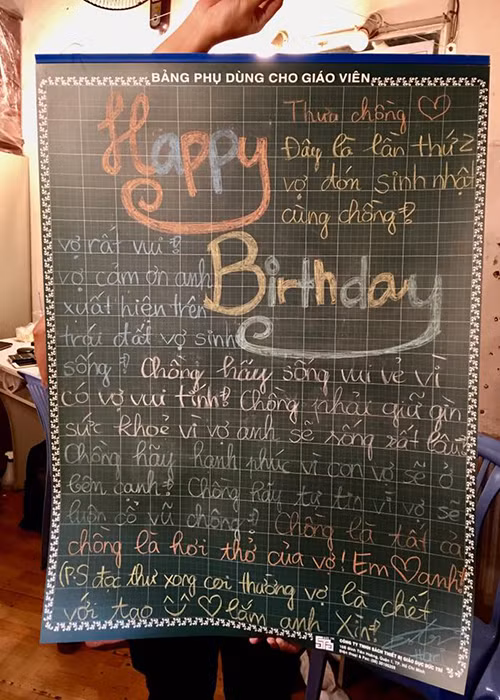 BẢNG PHỤ DÙNG CHO GIÁO VIÊN
Happy
Birthday
Thưa chồng ♡
Đây là lần thứ 2
vợ đón sinh nhật
cùng chồng?
vợ rất vui?
vợ cảm ơn anh
xuất hiện trên
trái đất vợ sinh
sống? Chồng hãy sống vui vẻ vì
có vợ vui tính? Chồng phải giữ gìn
sức khoẻ vì vợ anh sẽ sống rất lâu?
Chồng hãy hạnh phúc vì con vợ sẽ ở
bên cạnh? Chồng hãy tự tin vì vợ sẽ
luôn cổ vũ chồng? Chồng là tất cả
chồng là hơi thở của vợ! Em ♡ anh?
(P.S đọc thư xong coi thường vợ là chết
với tao ♡ lắm anh Xìn?
CÔNG TY TNHH SÁCH THIẾT BỊ GIÁO DỤC ĐỨC TRÍ